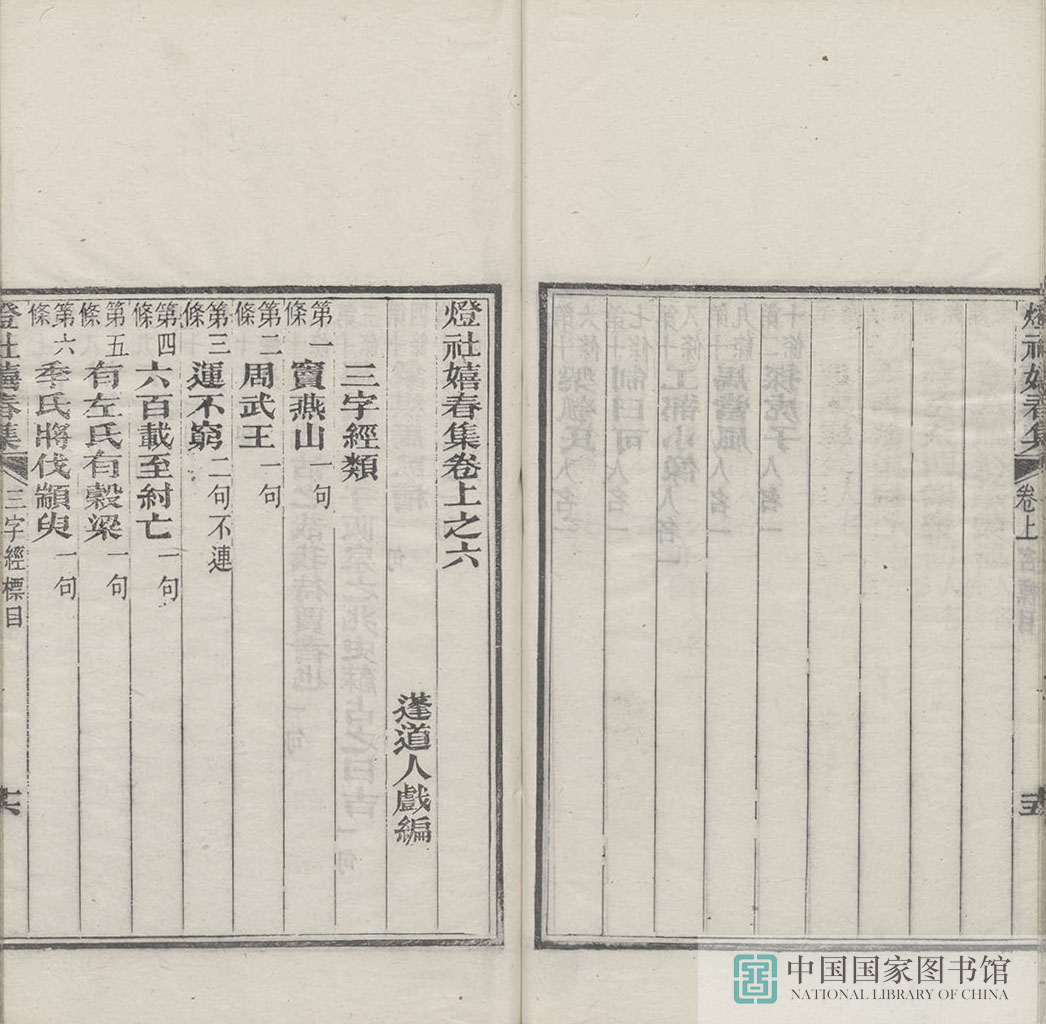 燈社嬉春集
卷上
燈社嬉春集卷上之六
蓬道人戲編
三字經類
第一條 竇燕山 一句
第二條 周武王 一句
第三條 運不窮 二句不連
第四條 六百載至紂亡 一句
第五條 有左氏有穀梁 一句
第六條 季氏將伐顓臾 一句
燈社嬉春集
三字經標目
中国国家图书馆
NATIONAL LIBRARY OF CHINA